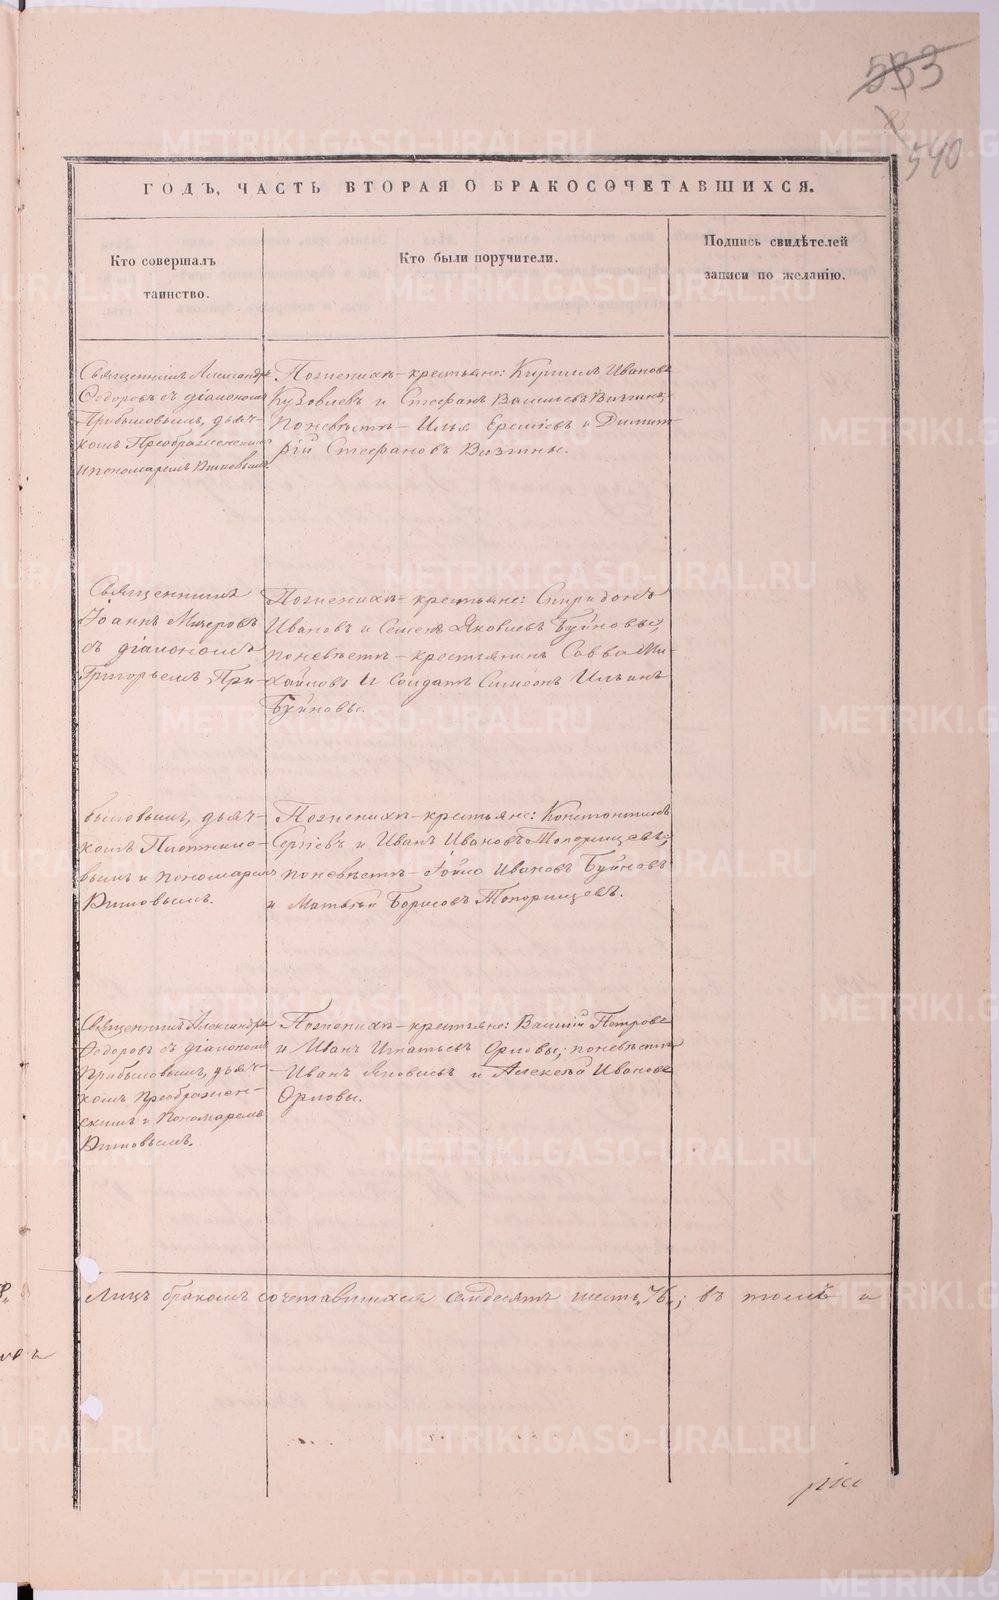 533
540
ГОДЪ, ЧАСТЬ ВТОРАЯ О БРАКОСОЧЕТАВШИХСЯ.
Кто совершалъ
таинство.
Кто были поручители.
Подпись свидѣтелей
записи по желанію.
Священникъ Александръ
Федоровъ съ діакономъ
Прибыловымъ, дьяч-
комъ Преображенскимъ
и пономаремъ
По женихѣ – крестьяне: Кириллъ Ивановъ
Кузовлевъ и Стефанъ Васильевъ Визгинъ;
по невѣстѣ – Илья Еремѣевъ и Димит-
рій Стефановъ Визгины.
Священникъ
Іоаннъ Мичеровъ
съ діакономъ
Григорьемъ При-
По женихѣ – крестьяне: Спиридонъ
Ивановъ и Семенъ Яковлевъ Буйновы,
по невѣстѣ – крестьянинъ Савва Ми-
хайловъ и Солдатъ Симеонъ Ильинъ
Буйновы.
быловымъ, дьяч-
комъ Плотнико-
вымъ и пономаремъ
По женихѣ – крестьяне: Константинъ
Сергіевъ и Иванъ Ивановъ Топорищевъ;
по невѣстѣ – Ивановъ Буйновъ
и Матвѣй Борисовъ Топорищевъ.
Священникъ Александръ
Федоровъ съ діакономъ
Прибыловымъ, дьяч-
комъ Преображен-
скимъ и Пономаремъ
По женихѣ – крестьяне: Василій Петровъ
и Иванъ Игнатьевъ Орловы; по невѣстѣ
– Иванъ Яковлевъ и Алексѣй Ивановъ
Орловы.
Лицъ бракомъ сочетавшихся семдесятъ шесть „76„; въ томъ и
METRIKI.GASO-URAL.RU